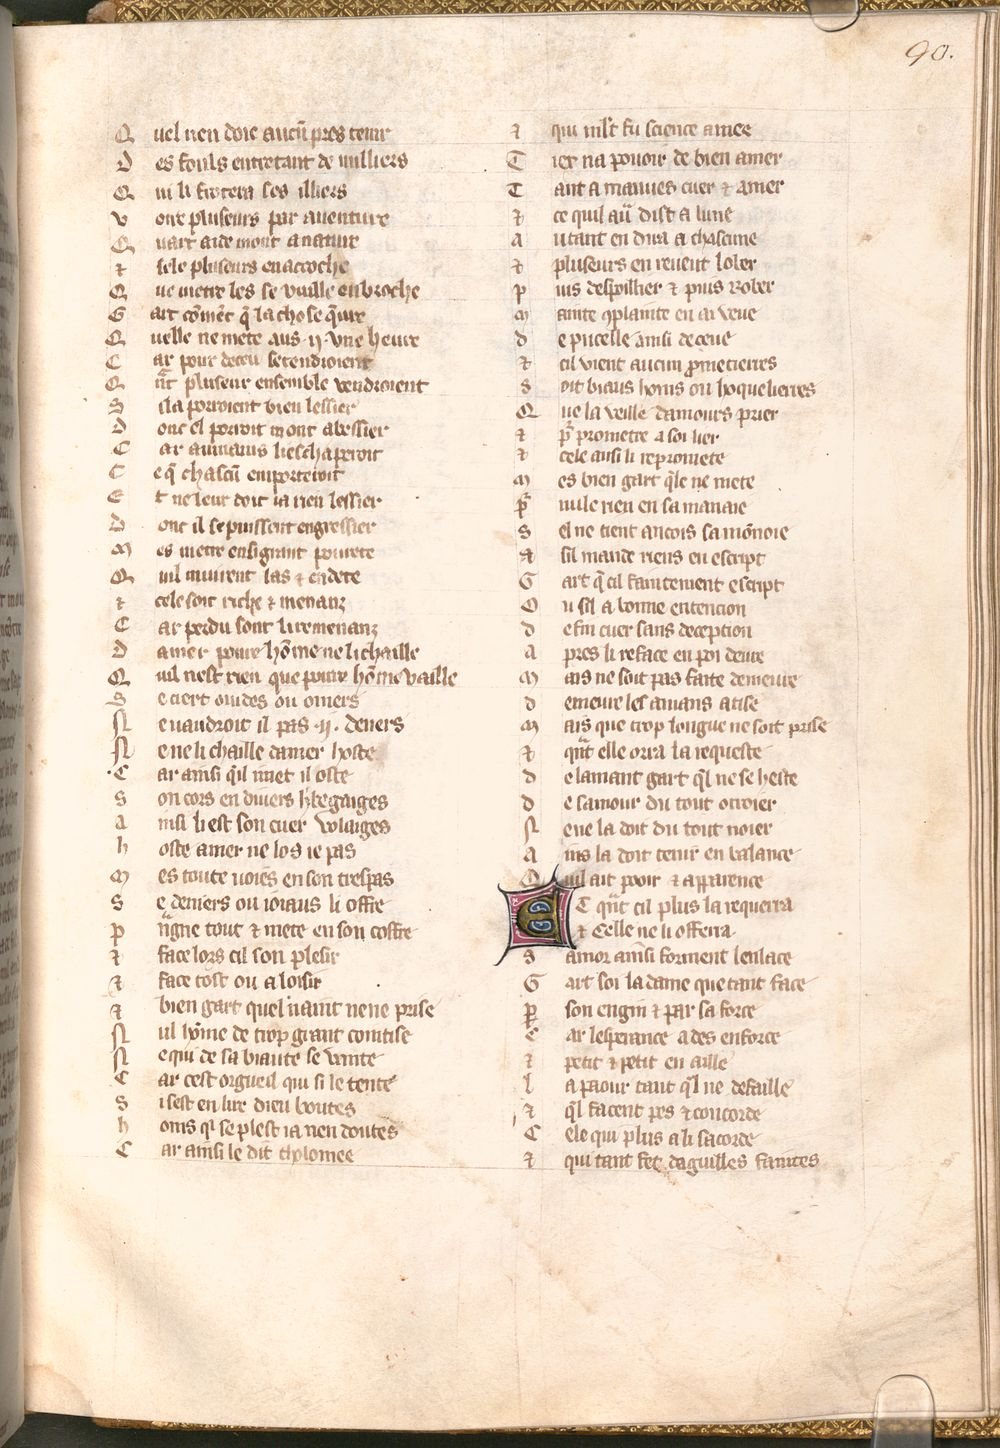 90.
Quel nen doie aucũ pres tenir
Des fouls entretant de milliers
Qui li frotera ses illiers
Voire pluseurs par auenture
Quart aide mout a nature
⁊ sele pluseurs en acroche
Que metre les se vuille en broche
Gart cõmẽt q̃ la chose q̃ure
Quelle ne mete aus .ij. vne heure
Car pour deceu se tendroient
Qñt pluseur ensemble vendroient
Si la porroient bien lessier
Donc el porroit mont abessier
Car au mains li eschaperoit
Ce q̃ chascũ emporteroit
Et ne leur doit ia rien lessier
Dont il se puissent engressier
Mes metre en si grant pourete
Quil muirent las ⁊ endete
⁊ cele soit riche ⁊ menanz
Car perdu sont li remenanz
Damer poure hõme ne li chaille
Quil nest rien que poure hõme vaille
Se ciert ouides ou omers
Ne vaudroit il pas .ij. deners
Ne ne li chaille damer hoste
Car ainsi q̃l met il oste
Son cors en diuers hbergaiges
Ainsi li est son cuer volaiges
Hoste amer ne los ie pas
Mes toute uoies en son trespas
Se deniers ou ioiaus li offre
Pñgne tout ⁊ mete en son coffre
⁊ face lors cil son plesir
⁊ face tost ou a loisir
⁊ bien gart quel naint ne ne prise
Nul hõme de trop grant cointise
Ne qui de sa biaute se vante
Car cest orgueil qui si le tente
Si sest en lire dieu boutes
Homs qi se plest ia nen doutes
Car ainsi le dit tholomee
⁊ qui mlt̃ fu science amee
Tiex na pouoir de bien amer
Tant a mauues cuer ⁊ amer
⁊ ce quil aũ dist a lune
Autant en dira a chascune
⁊ pluseurs en reuent lober
Puis despoillier ⁊ puis rober
Mainte qplainte en ai veue
De pucelle ainsi deceue
⁊ cil vient aucun prometierres
Soit biaus horns ou hoquelierres
Que la veille damours prier
⁊ p̃ promettre a soi lier
⁊ cele ausi li repromete
Mes bien gart q̃le ne mete
P̃ nule rien en sa manaie
Sel ne tient ancois sa mõnoie
⁊ sil mande riens en escript
Gart q̃ cil faintement escript
Ou sil a bonne entencion
De fin cuer sans deception
Apres li reface en poi deure
Mais ne soit pas faite demeure
Demeure les amans atise
Mais que trop longue ne soit prise
⁊ qñt elle orra la requeste
De lamant gart q̃l ne se heste
De samour du tout otroier
Ne ne la doit du tout noier
Ains la doit tenir en balance
Quil ait pooir ⁊ apparence
ET qñt cil plus la requerra
⁊ Celle ne li offerra
Samor ainsi forment lenlace
Gart soi la dame que tant face
P̲ son engin ⁊ par sa force
Car lesperance ades enforce
⁊ petit ⁊ petit en aille
La paour tant q̃l ne defaille
⁊ q̃l facent pes ⁊ concorde
Cele qui plus a li sacorde
⁊ qui tant fet daguilles faintes